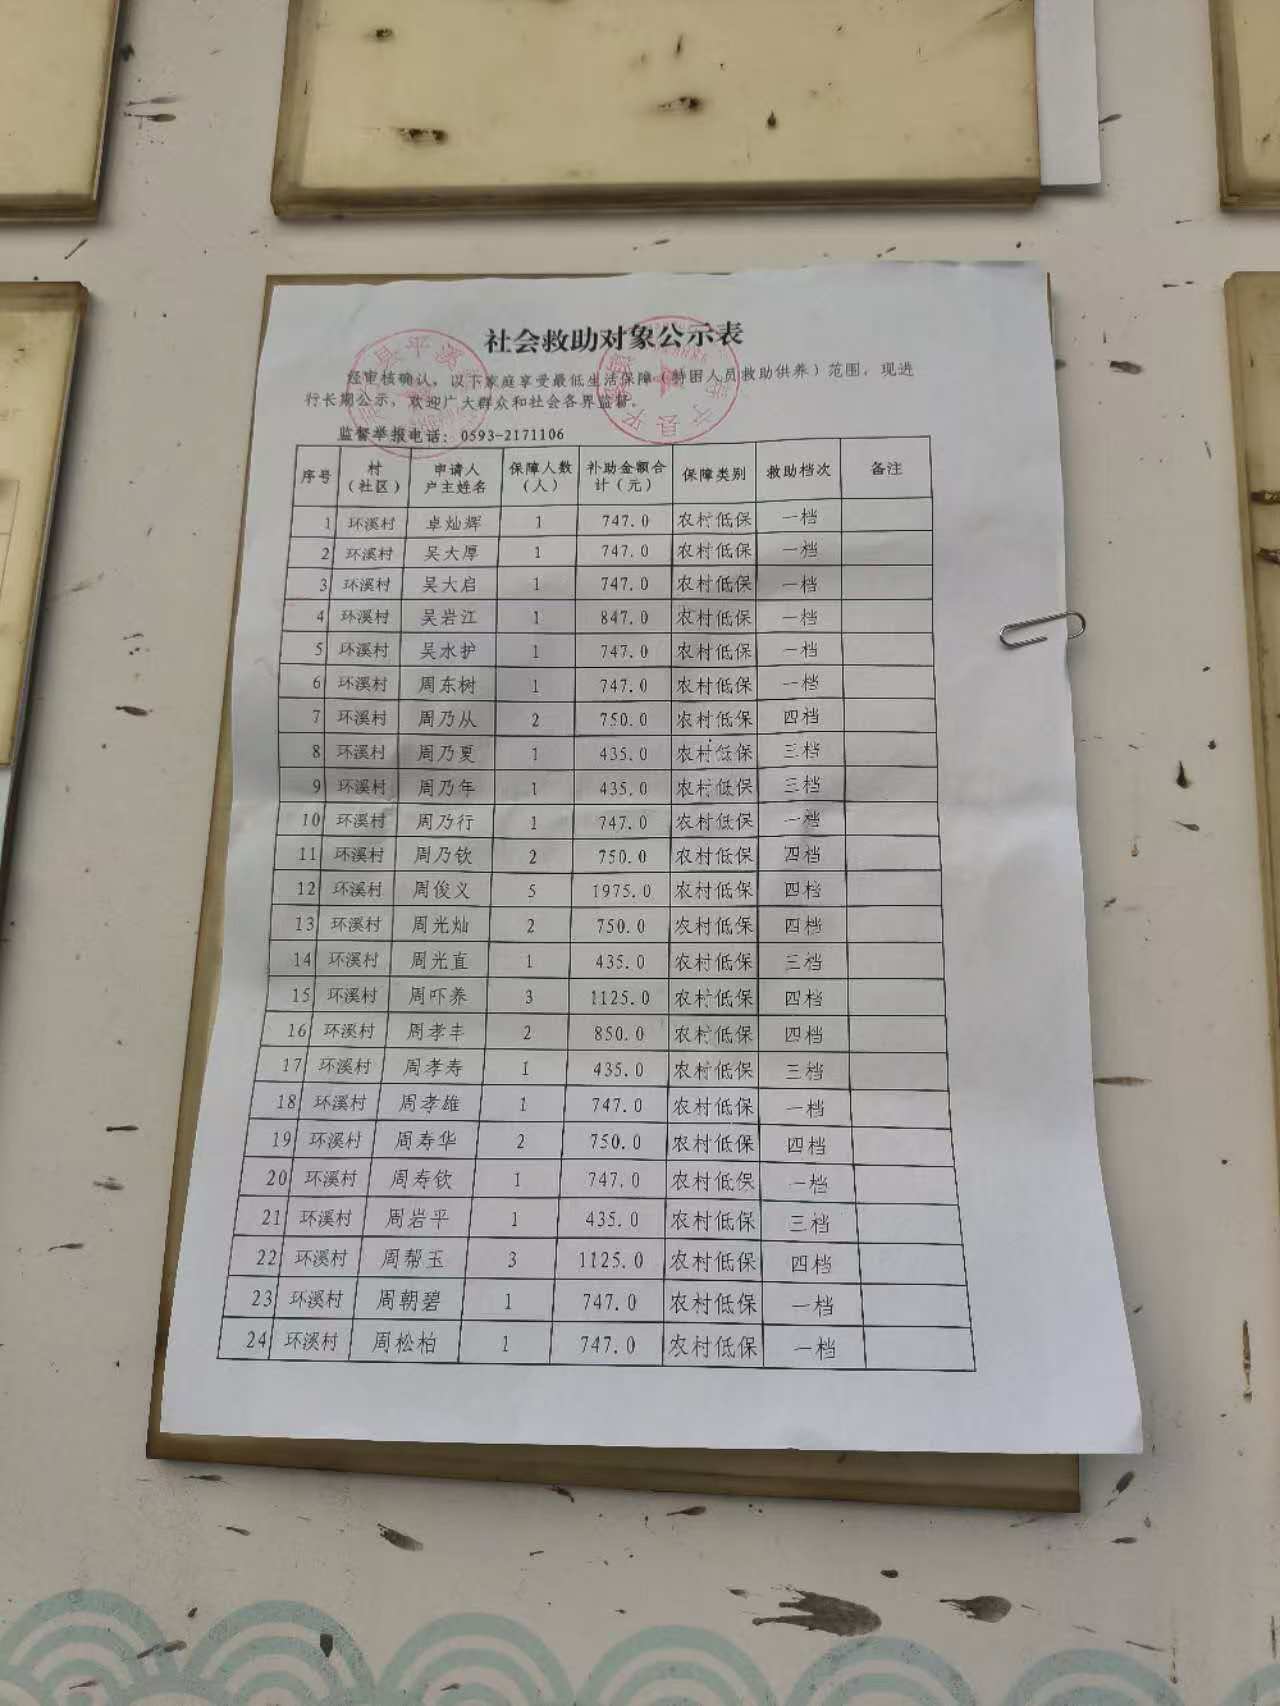 社会救助对象公示表
经审核确认，以下家庭享受最低生活保障（特困人员救助供养）范围，现进
行长期公示，欢迎广大群众和社会各界监督。
监督举报电话：0593-2171106
序号 村（社区） 申请人户主姓名 保障人数（人） 补助金额合计（元） 保障类别 救助档次 备注
1 环溪村 卓灿辉 1 747.0 农村低保 一档
2 环溪村 吴大厚 1 747.0 农村低保 一档
3 环溪村 吴大启 1 747.0 农村低保 一档
4 环溪村 吴岩江 1 847.0 农村低保 一档
5 环溪村 吴水护 1 747.0 农村低保 一档
6 环溪村 周东树 1 747.0 农村低保 一档
7 环溪村 周乃从 2 750.0 农村低保 四档
8 环溪村 周乃夏 1 435.0 农村低保 三档
9 环溪村 周乃年 1 435.0 农村低保 三档
10 环溪村 周乃行 1 747.0 农村低保 一档
11 环溪村 周乃钦 2 750.0 农村低保 四档
12 环溪村 周俊义 5 1975.0 农村低保 四档
13 环溪村 周光灿 2 750.0 农村低保 四档
14 环溪村 周光直 1 435.0 农村低保 三档
15 环溪村 周吓养 3 1125.0 农村低保 四档
16 环溪村 周孝丰 2 850.0 农村低保 四档
17 环溪村 周孝寿 1 435.0 农村低保 三档
18 环溪村 周孝雄 1 747.0 农村低保 一档
19 环溪村 周寿华 2 750.0 农村低保 四档
20 环溪村 周寿钦 1 747.0 农村低保 一档
21 环溪村 周岩平 1 435.0 农村低保 三档
22 环溪村 周帮玉 3 1125.0 农村低保 四档
23 环溪村 周朝碧 1 747.0 农村低保 一档
24 环溪村 周松柏 1 747.0 农村低保 一档